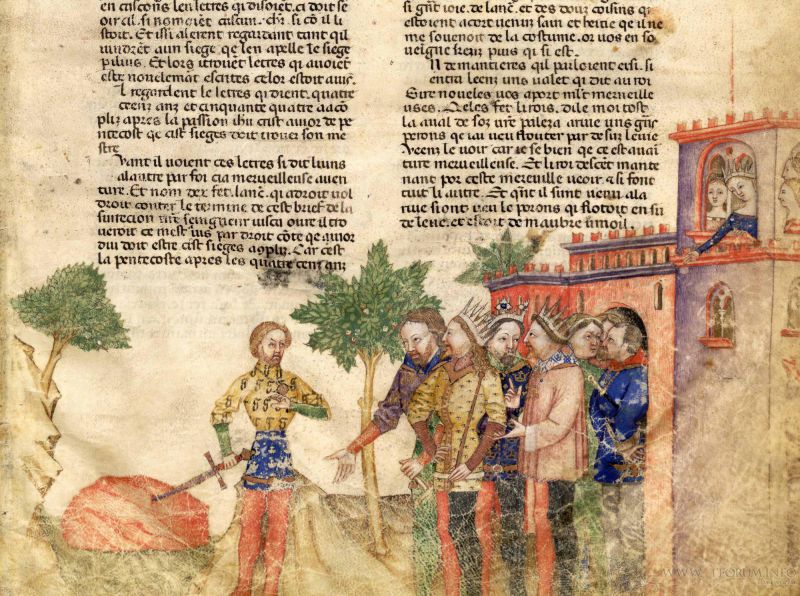 en cascons len letres qui disoiet, ci doit se
oir cil. si nomoiet cascun. chr. si cō il li
stoit. Et issi alerent regardant tant qil
vindrēt au siege, qe len apelle le siege
pilius. Et lors trouēt letres qi auoiēt
este nouelemāt escrites celor estoit auis.
Il regardent le letres qi dient. quatre
cenz anz et cinquante quatre a acō
pliz apres la passion ihu crist au ior de pe
tecost qe cist sieges doit trouer son me
stre.
Quant il uoient ces letres si dit luns
a lautre par foi ci a merueilleuse auen
ture. Et nom der fet. lanc. qi a droit vol
droit conter le termine de cest brief de la
surrecion nre seingneur iusca oure il tro
ueroit ce mest uis par droit cōte qe au ior
dui doit estre cist sieges apliz. Car cest
la pentecoste apres les quatre cenz anz
si gnt ioie. de lanc. et des dous cosins qi
estoient a cort venuz sain et heitie qe il ne
me souenoit de la costume. or uos en so
ueigne fet puis qi si est.
En demantieres qil parloient ensi. si
entra leenz uns ualet qi dit au roi
Sire noueles uos aport mlt merueille
uses. Qeles fet li rois, di le moi tost
la aual de soz uotre paleza ariue uns gnt
perons qe iai ueu floiter par desur leiue
Venez le uoir car ie se bien qe ce est auan
ture merueilleuse. Et li roi descēt mante
nant por ceste merueille ueoir, & si font
tuit li autre. Et qnt il sunt uenu a la
riue si ont ueu le perons qi flotoit en su
de leue, et estoit de maubre uimoil.
WWW.TFORUM.INFO